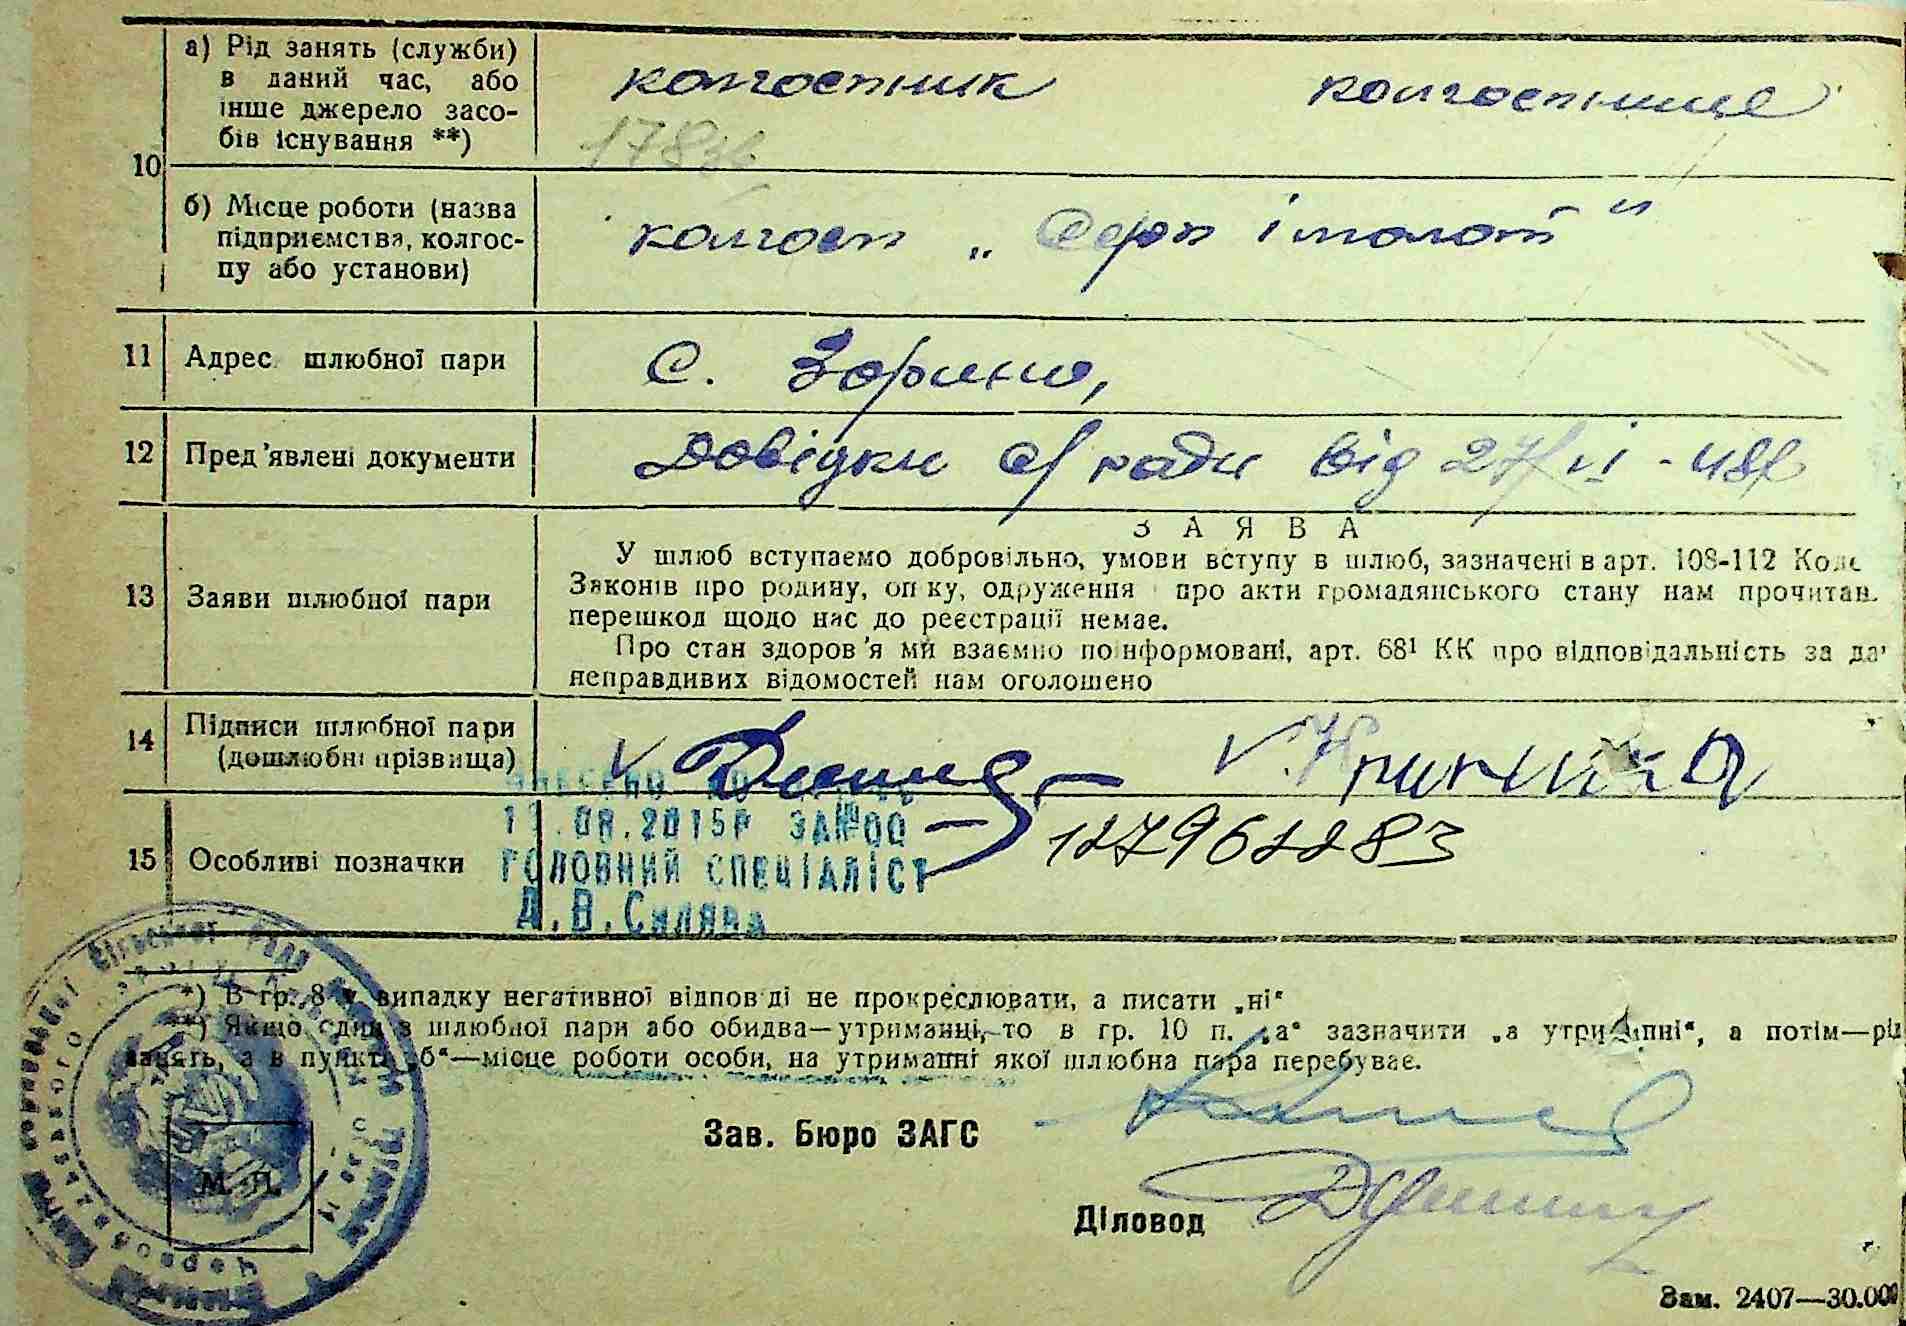 10
а) Рід занять (служби)
в даний час, або
інше джерело засо-
бів існування **)
колгоспник колгоспниця
178
б) Місце роботи (назва
підприємства, колгос-
пу або установи)
колгосп „Серп і молот"
11 Адрес шлюбної пари
с. Зорино,
12 Пред'явлені документи
Довідки с/ради від 27/VI-48р
13 Заяви шлюбної пари
ЗАЯВА
У шлюб вступаємо добровільно, умови вступу в шлюб, зазначені в арт. 108-112
Законів про родину, опіку, одруження про акти громадянського стану нам прочитан
перешкод щодо нас до реєстрації немає.
Про стан здоров'я ми взаємно поінформовані, арт. 68¹ КК про відповідальність за
неправдивих відомостей нам оголошено
14 Підписи шлюбної пари
(дошлюбні прізвища)
V V.
15 Особливі позначки
ВНЕСЕНО ДО
.08.2015Р ЗА№00
127962283
ГОЛОВНИЙ СПЕЦІАЛІСТ
Д.В.Силява
*) В гр. 8 у випадку негативної відповіді не прокреслювати, а писати „ні"
**) Якщо один з шлюбної пари або обидва—утриманці, то в гр. 10 п. „а" зазначити „а утриманні", а потім—рід
занять, а в пункті „б"—місце роботи особи, на утриманні якої шлюбна пара перебуває.
М. П.
Зав. Бюро ЗАГС
Діловод
Зам. 2407—30.000